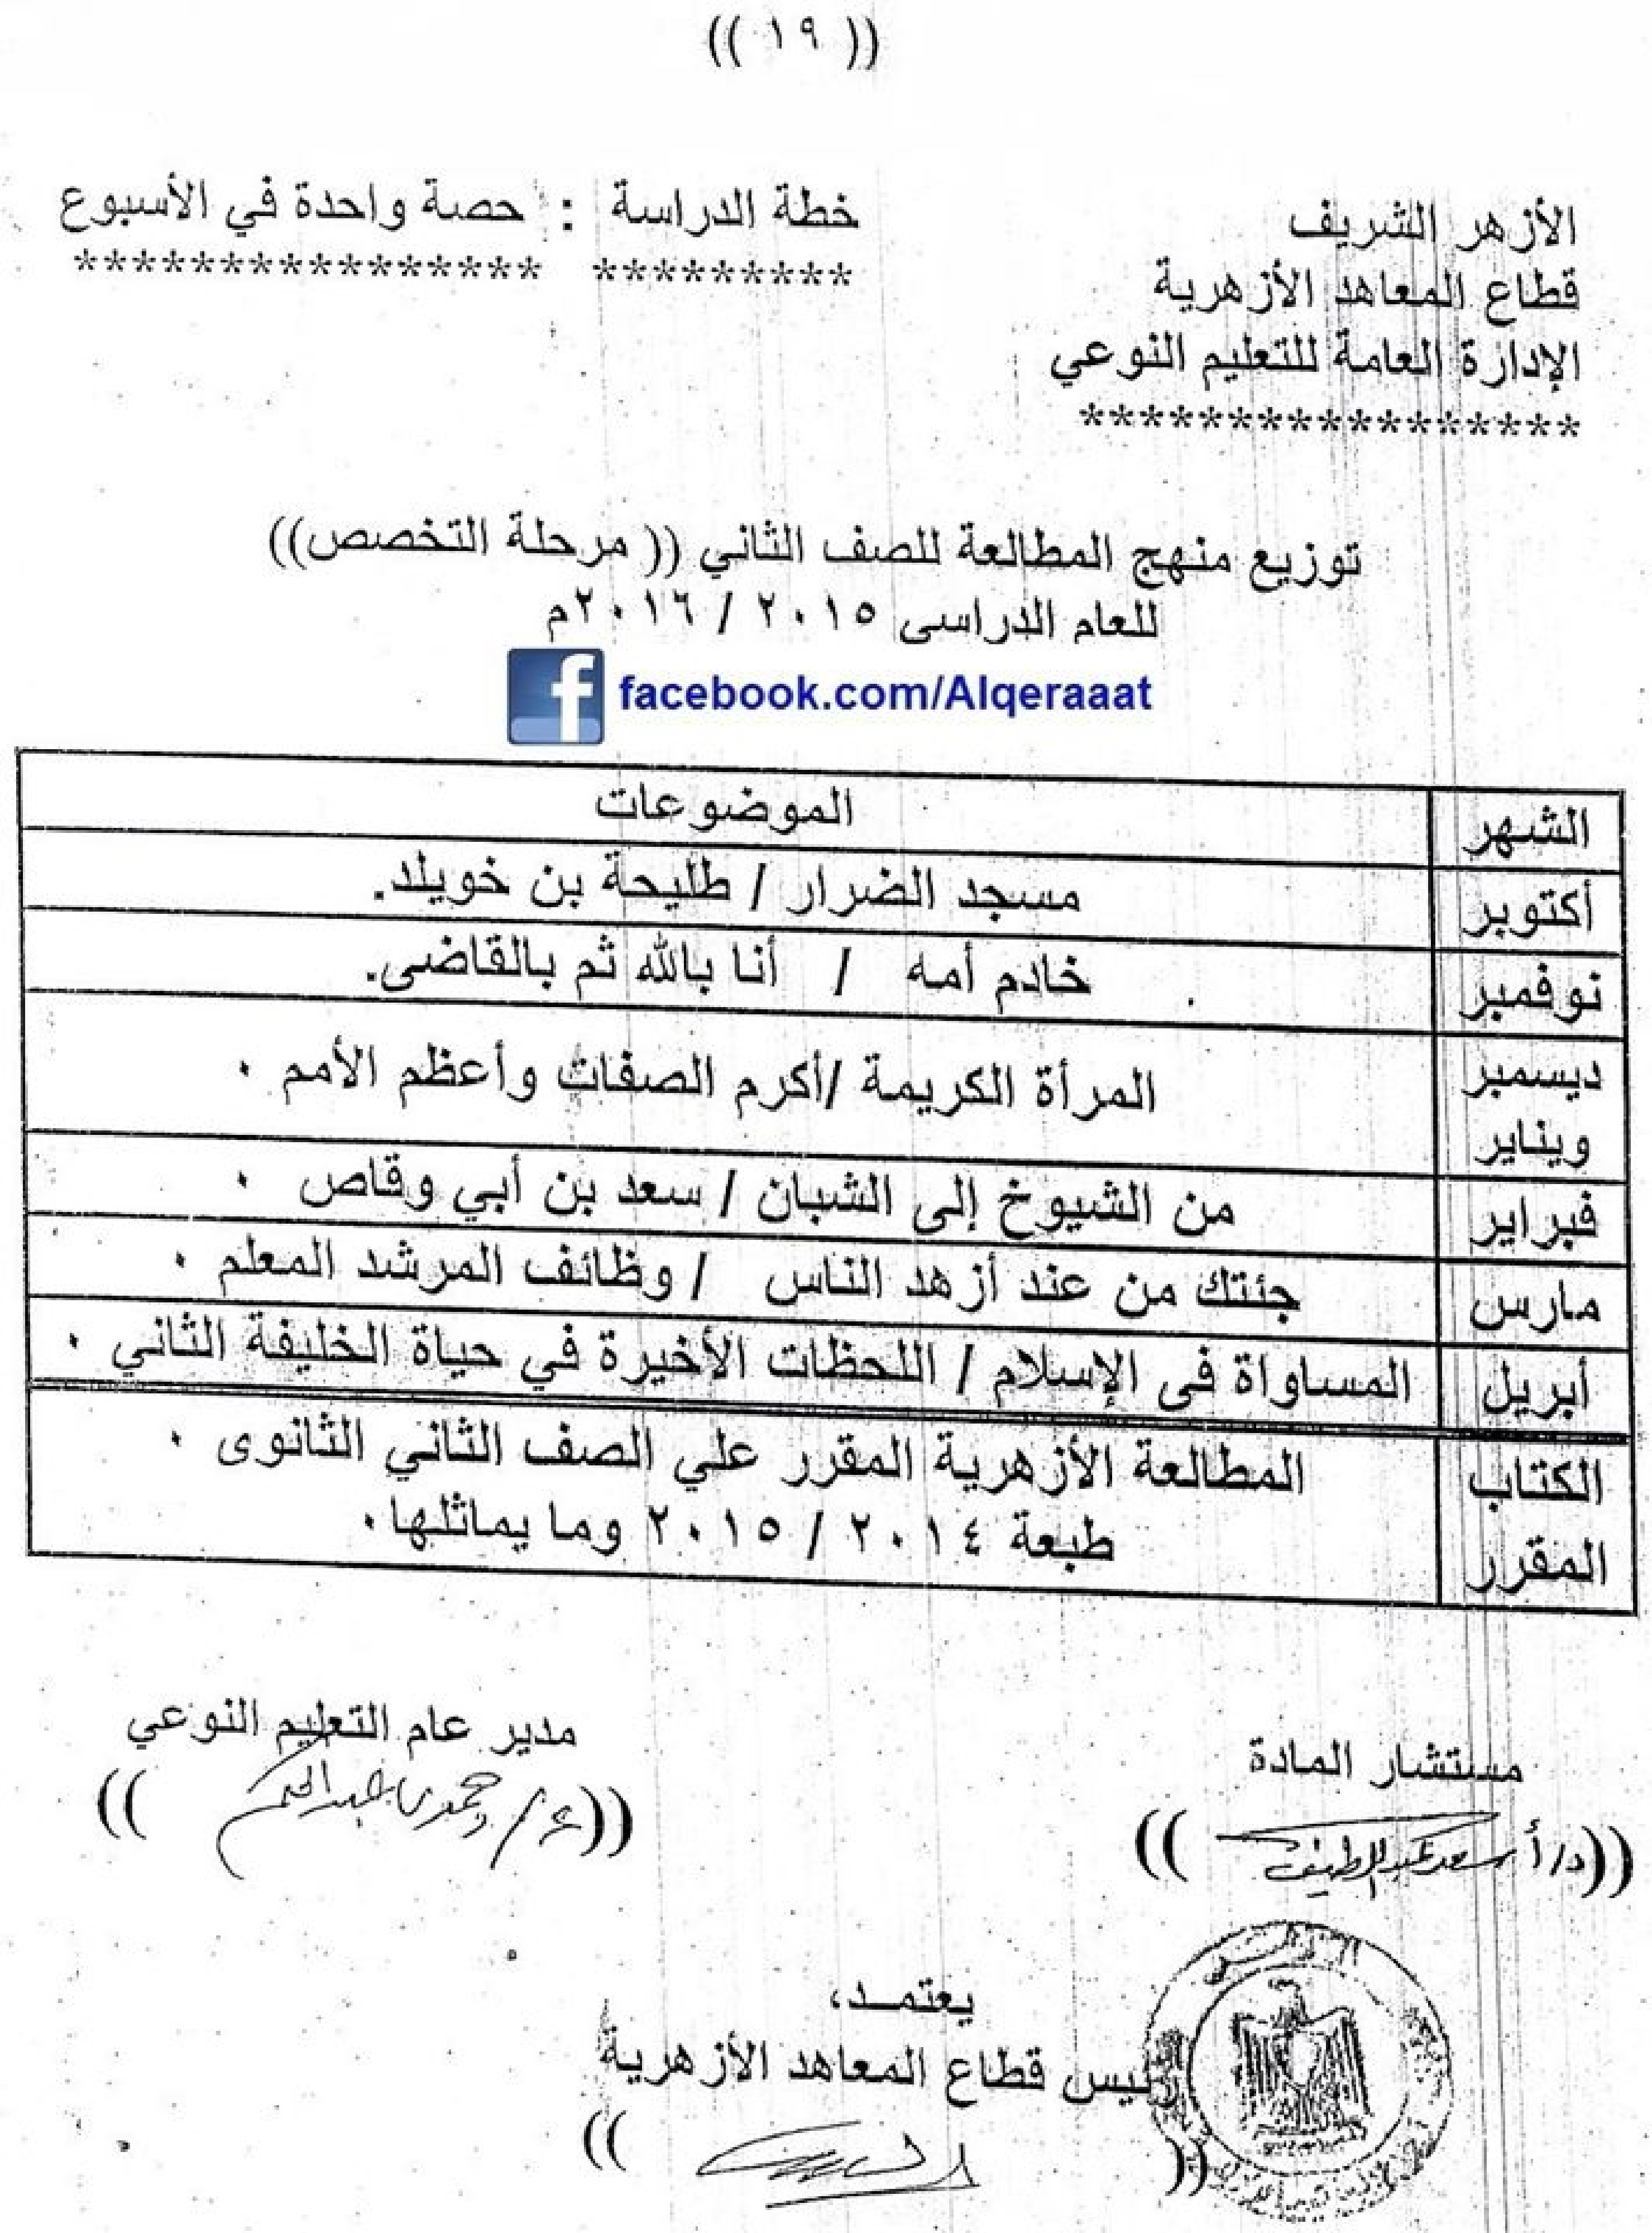 (( ١٩ ))
الأزهر الشريف
قطاع المعاهد الأزهرية
الإدارة العامة للتعليم النوعي
******************
خطة الدراسة : حصة واحدة في الأسبوع
********* ****************
توزيع منهج المطالعة للصف الثاني (( مرحلة التخصص))
للعام الدراسى ٢٠١٥ / ٢٠١٦م
facebook.com/Alqeraaat
الشهر الموضوعات
أكتوبر مسجد الضرار / طليحة بن خويلد.
نوفمبر خادم أمه / أنا بالله ثم بالقاضى.
ديسمبر
ويناير
المرأة الكريمة /أكرم الصفات وأعظم الأمم .
فبراير من الشيوخ إلى الشبان / سعد بن أبي وقاص .
مارس جئتك من عند أزهد الناس / وظائف المرشد المعلم .
أبريل المساواة فى الإسلام / اللحظات الأخيرة في حياة الخليفة الثاني .
الكتاب
المقرر
المطالعة الأزهرية المقرر علي الصف الثاني الثانوى .
طبعة ٢٠١٤ / ٢٠١٥ وما يماثلها.
مستشار المادة
((د/أ سعد عبد اللطيف ))
مدير عام التعليم النوعي
((ع/ حمدى عبد الحكم ))
يعتمـد،
رئيس قطاع المعاهد الأزهرية
(( ))